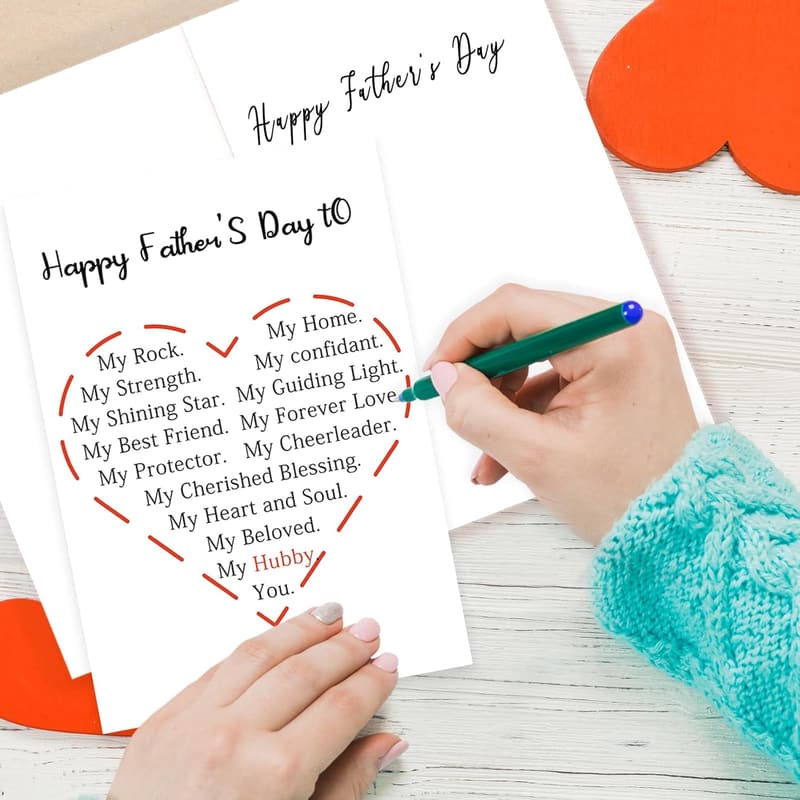 Happy Father's Day
Happy Father'S Day tO
My Rock.
My Strength.
My Shining Star.
My Best Friend.
My Protector.
My Home.
My confidant.
My Guiding Light.
My Forever Love.
My Cheerleader.
My Cherished Blessing.
My Heart and Soul.
My Beloved.
My Hubby.
You.